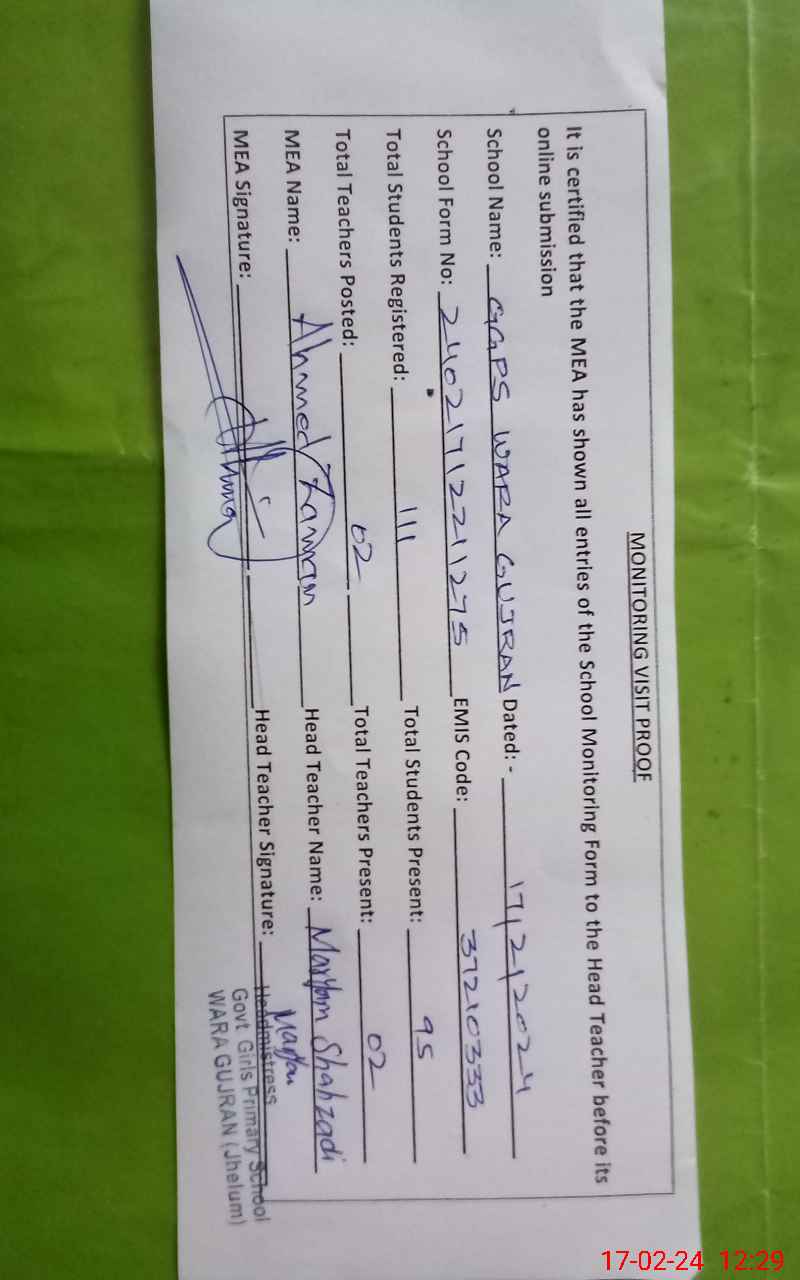 MONITORING VISIT PROOF
It is certified that the MEA has shown all entries of the School Monitoring Form to the Head Teacher before its
online submission
School Name: GGPS WARA GUJRAN Dated: - 17/2/2024
School Form No: 24021712211275 EMIS Code: 37210333
Total Students Registered: 111 Total Students Present: 95
Total Teachers Posted: 02 Total Teachers Present: 02
MEA Name: Ahmed Zaman Head Teacher Name: Maryam Shahzadi
MEA Signature: Head Teacher Signature: Maryam
Headmistress
Govt Girls Primary School
WARA GUJRAN (Jhelum)
17-02-24 12:29